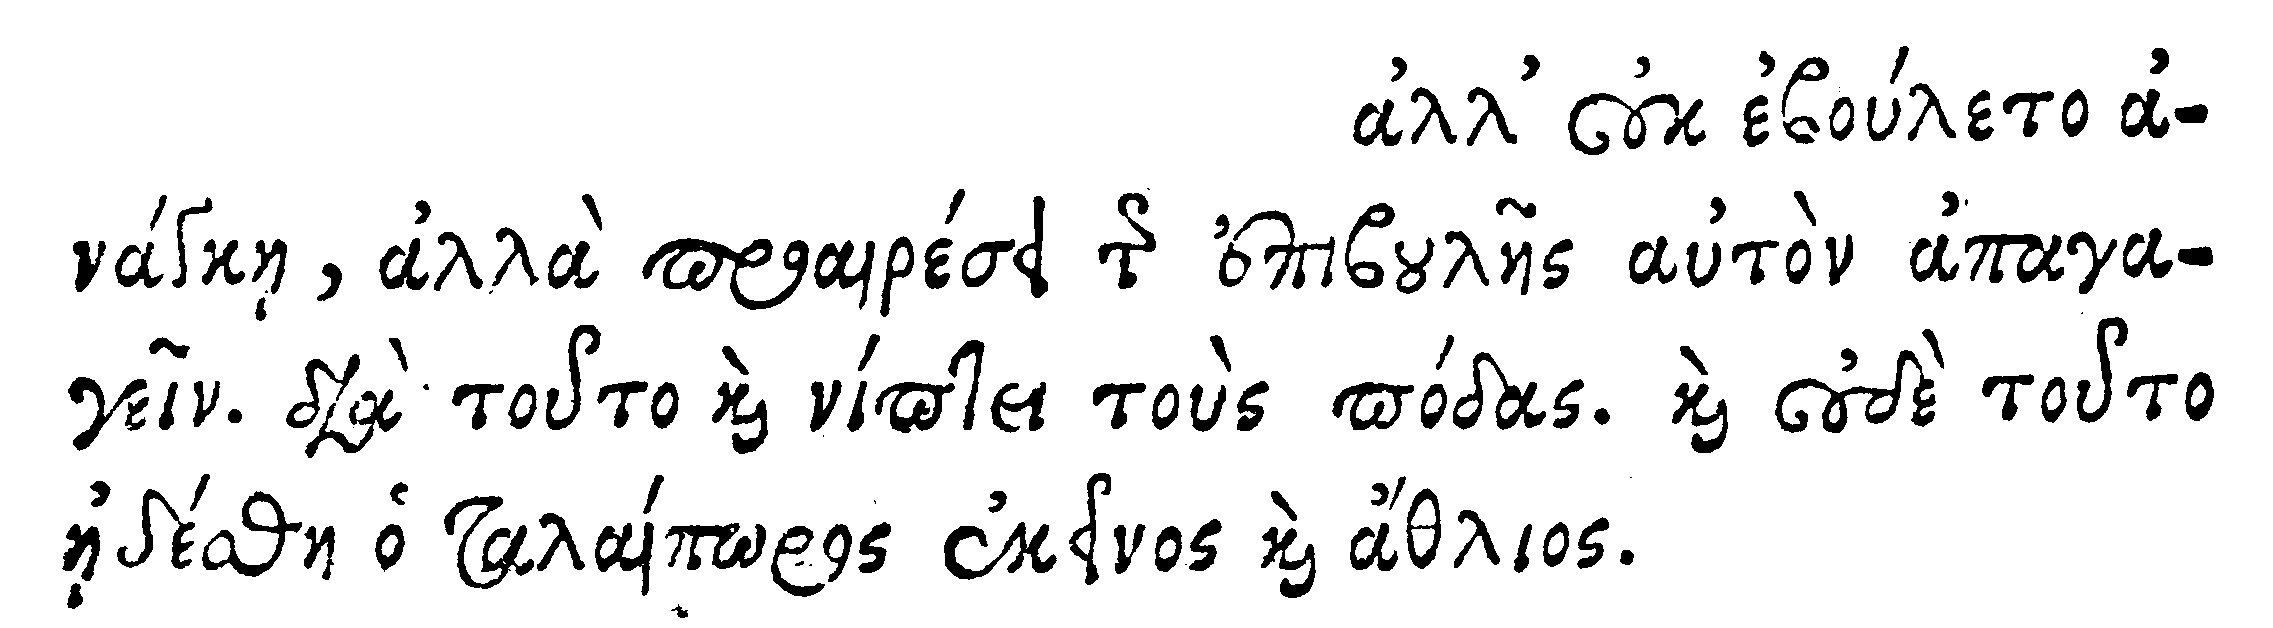 ἀλλ’ οὐκ ἐβούλετο ἀ-
νάγκῃ, ἀλλὰ προαιρέσει τῆς ἐπιβουλῆς αὐτὸν ἀπαγα-
γεῖν. διὰ τοῦτο καὶ νίπτει τοὺς πόδας. καὶ οὐδὲ τοῦτο
ᾐδέσθη ὁ ταλαίπωρος ἐκεῖνος καὶ ἄθλιος.